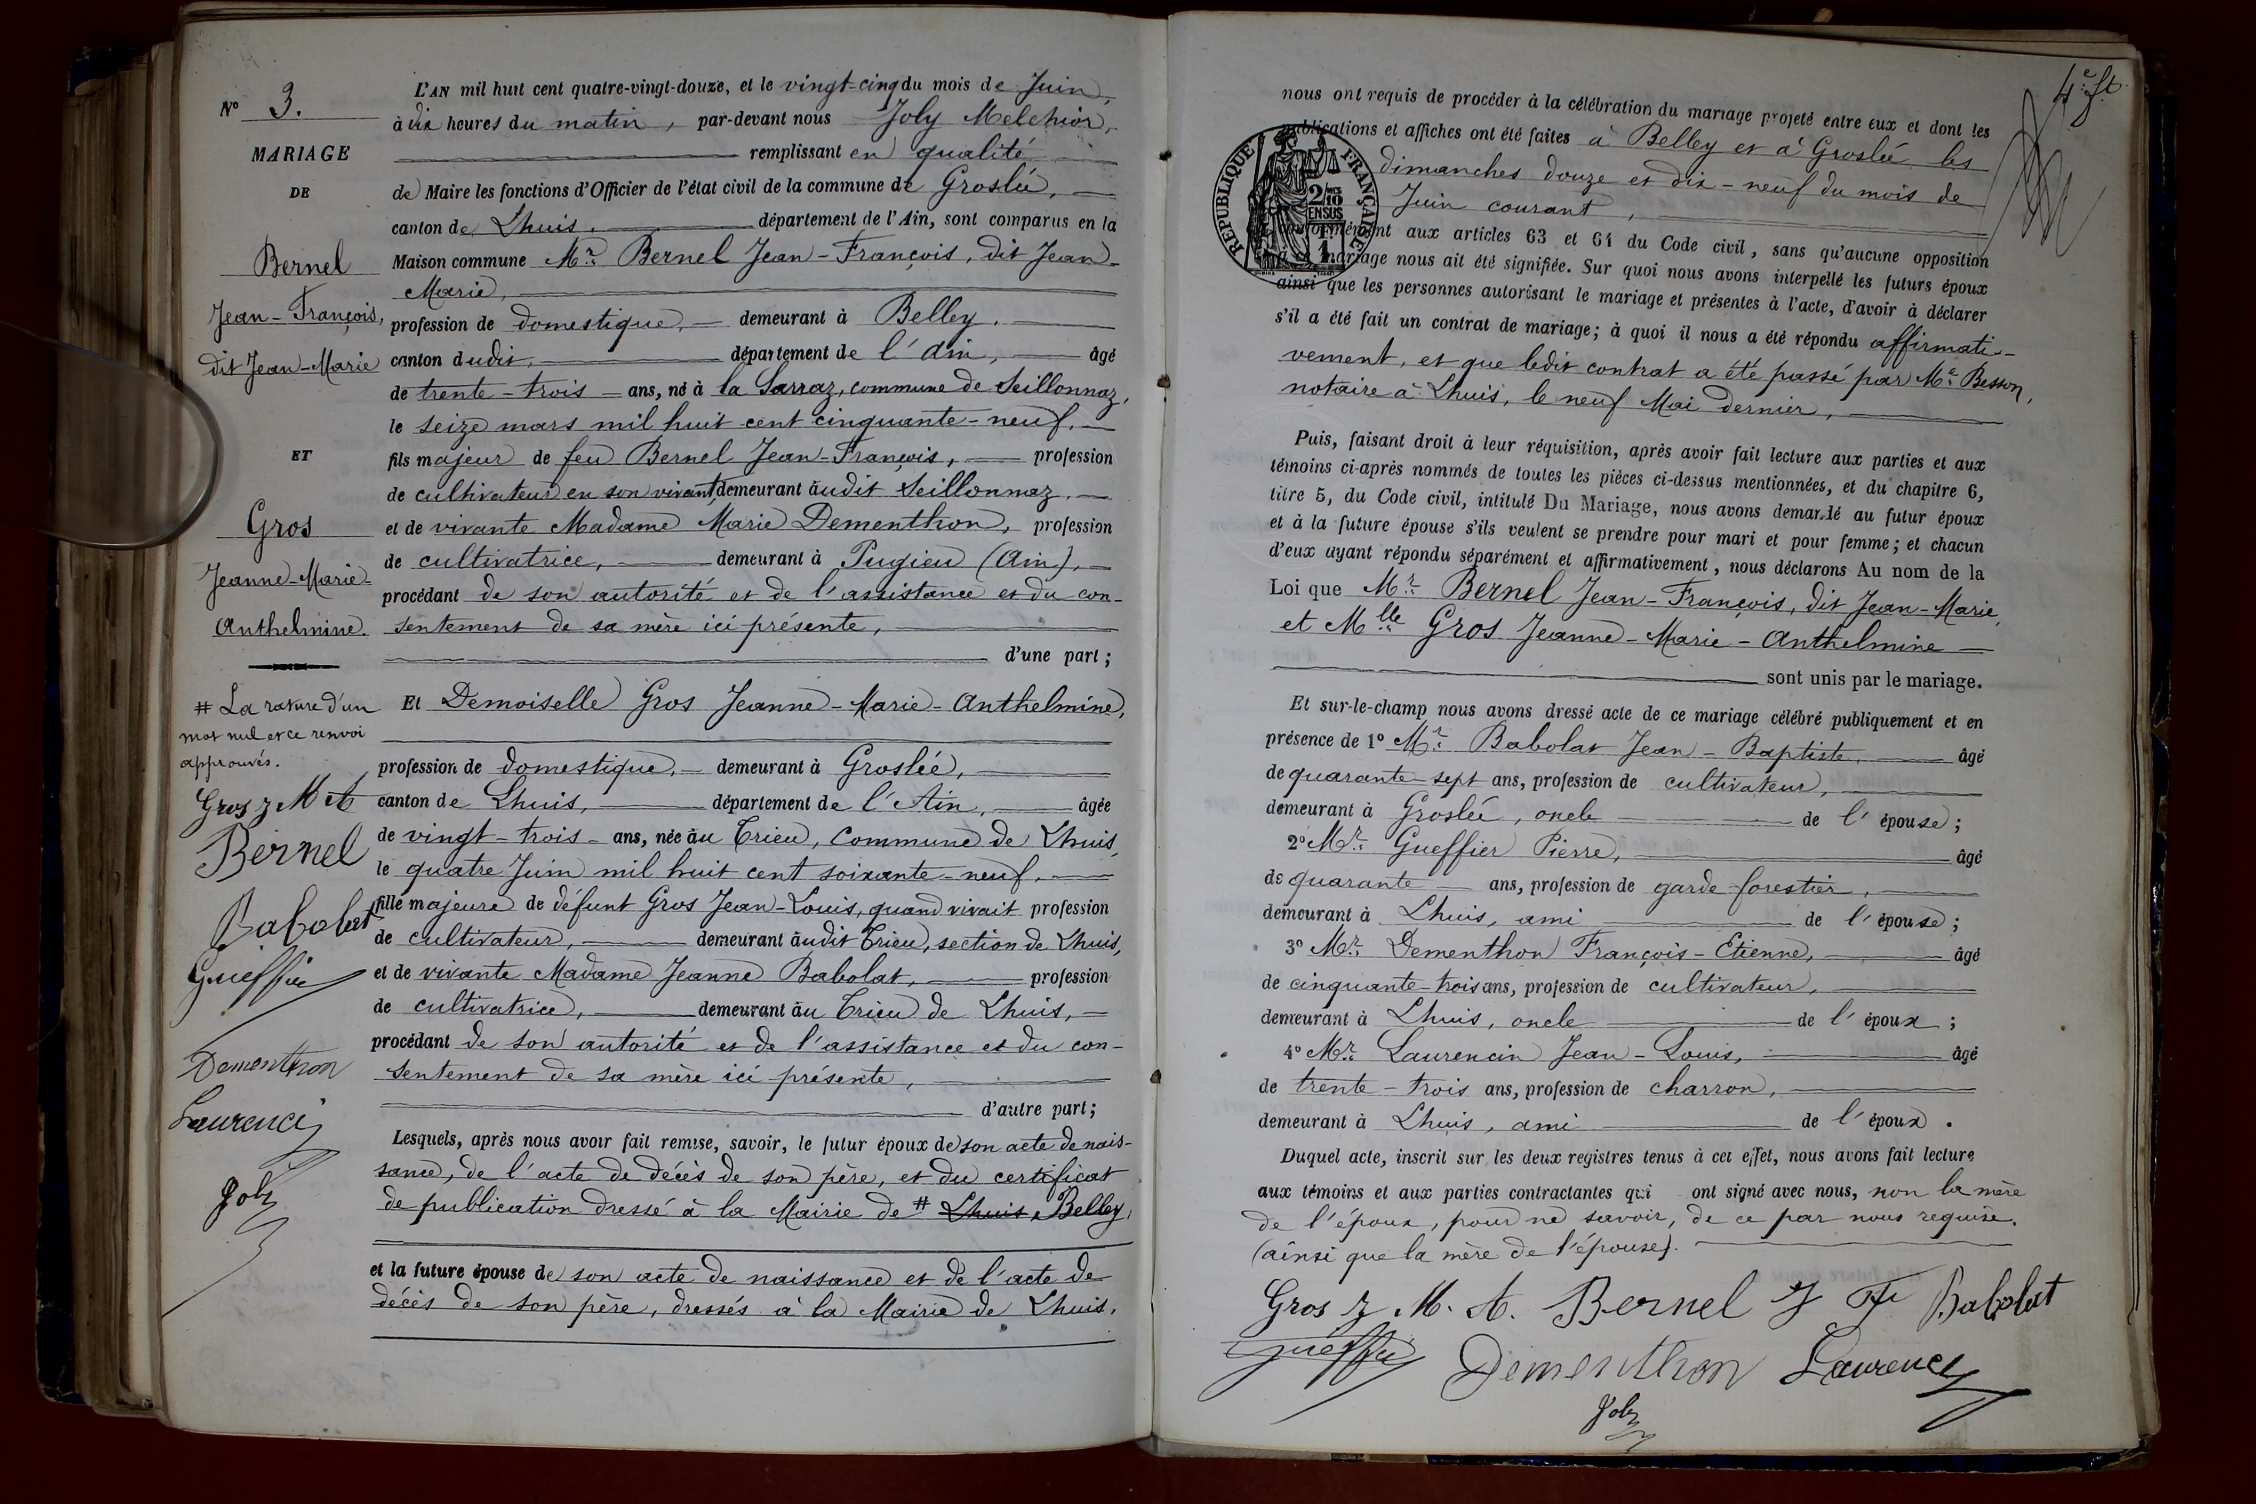 N° 3.
MARIAGE
DE
Bernel
Jean-François,
dit Jean-Marie
ET
Gros
Jeanne-Marie-
Anthelmine.
# La rature d'un
mot nul et ce renvoi
approuvés.
Gros J M A
Bernel
Babolat
Gueffier
Dementhon
Laurencin
Joly
L'AN mil huit cent quatre-vingt-douze, et le vingt-cinq du mois de Juin,
à dix heures du matin, par-devant nous Joly Melchior,
remplissant en qualité
de Maire les fonctions d'Officier de l'état civil de la commune de Groslée,
canton de Lhuis, département de l'Ain, sont comparus en la
Maison commune Mr. Bernel Jean-François, dit Jean-
Marie,
profession de domestique, demeurant à Belley,
canton dudit, département de l'Ain, âgé
de trente-trois ans, né à la Sarraz, commune de Seillonnaz,
le seize mars mil huit cent cinquante-neuf,
fils majeur de feu Bernel Jean-François, profession
de cultivateur en son vivant, demeurant audit Seillonnaz,
et de vivante Madame Marie Dementhon, profession
de cultivatrice, demeurant à Pugieu (Ain),
procédant de son autorité et de l'assistance et du con-
sentement de sa mère ici présente,
d'une part;
Et Demoiselle Gros Jeanne-Marie-Anthelmine,
profession de domestique, demeurant à Groslée,
canton de Lhuis, département de l'Ain, âgée
de vingt-trois ans, née au Crieu, commune de Lhuis,
le quatre Juin mil huit cent soixante-neuf,
fille majeure de défunt Gros Jean-Louis, quand vivait profession
de cultivateur, demeurant audit Crieu, section de Lhuis,
et de vivante Madame Jeanne Babolat, profession
de cultivatrice, demeurant au Crieu de Lhuis,
procédant de son autorité et de l'assistance et du con-
sentement de sa mère ici présente,
d'autre part;
Lesquels, après nous avoir fait remise, savoir, le futur époux de son acte de nais-
sance, de l'acte de décès de son père, et du certificat
de publication dressé à la Mairie de # Lhuis, Belley,
et la future épouse de son acte de naissance et de l'acte de
décès de son père, dressés à la Mairie de Lhuis.
4e ft.
nous ont requis de procéder à la célébration du mariage projeté entre eux et dont les
publications et affiches ont été faites à Belley et à Groslée les
dimanches douze et dix-neuf du mois de
Juin courant,
conformément aux articles 63 et 64 du Code civil, sans qu'aucune opposition
à ce mariage nous ait été signifiée. Sur quoi nous avons interpellé les futurs époux
ainsi que les personnes autorisant le mariage et présentes à l'acte, d'avoir à déclarer
s'il a été fait un contrat de mariage; à quoi il nous a été répondu affirmati-
vement, et que ledit contrat a été passé par Me. Besson,
notaire à Lhuis, le neuf Mai dernier,
RÉPUBLIQUE FRANÇAISE
2/10
EN SUS
Puis, faisant droit à leur réquisition, après avoir fait lecture aux parties et aux
témoins ci-après nommés de toutes les pièces ci-dessus mentionnées, et du chapitre 6,
titre 5, du Code civil, intitulé Du Mariage, nous avons demandé au futur époux
et à la future épouse s'ils veulent se prendre pour mari et pour femme; et chacun
d'eux ayant répondu séparément et affirmativement, nous déclarons Au nom de la
Loi que Mr. Bernel Jean-François, dit Jean-Marie,
et Mlle Gros Jeanne-Marie-Anthelmine
sont unis par le mariage.
Et sur-le-champ nous avons dressé acte de ce mariage célébré publiquement et en
présence de 1° Mr. Babolat Jean-Baptiste, âgé
de quarante-sept ans, profession de cultivateur,
demeurant à Groslée, oncle de l'épouse;
2° Mr. Gueffier Pierre, âgé
de quarante ans, profession de garde-forestier,
demeurant à Lhuis, ami de l'épouse;
3° Mr. Dementhon François-Etienne, âgé
de cinquante-trois ans, profession de cultivateur,
demeurant à Lhuis, oncle de l'époux;
4° Mr. Laurencin Jean-Louis, âgé
de trente-trois ans, profession de charron,
demeurant à Lhuis, ami de l'époux.
Duquel acte, inscrit sur les deux registres tenus à cet effet, nous avons fait lecture
aux témoins et aux parties contractantes qui ont signé avec nous, non la mère
de l'époux, pour ne savoir, de ce par nous requise.
(ainsi que la mère de l'épouse).
Gros J. M. A. Bernel J F Babolat
Gueffier Dementhon Laurencin
Joly